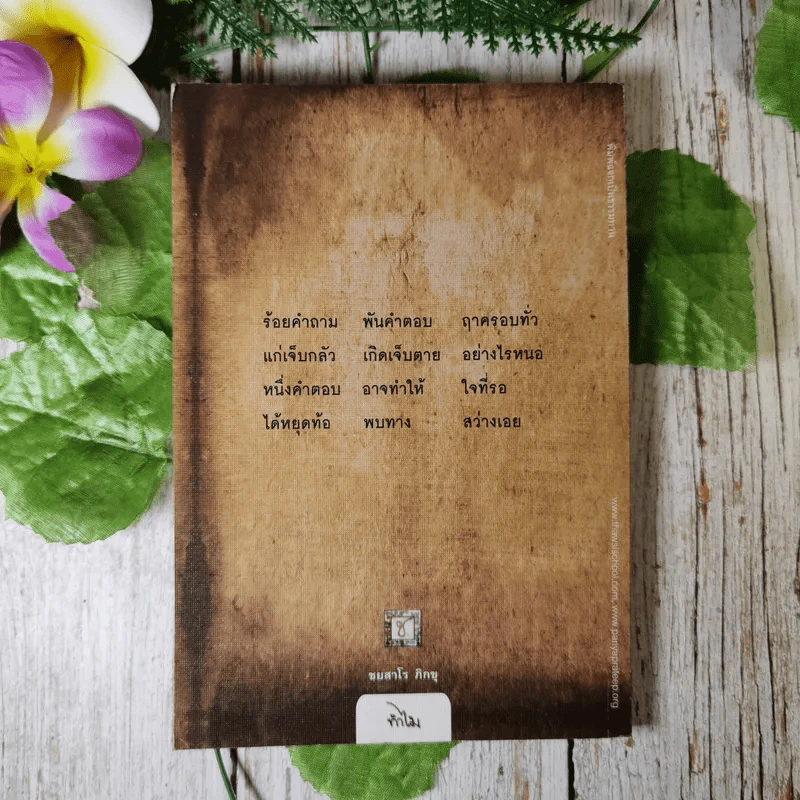 พิมพ์แจกเป็นธรรมทาน
ร้อยคำถาม พันคำตอบ ฤาครอบทั่ว
แก่เจ็บกลัว เกิดเจ็บตาย อย่างไรหนอ
หนึ่งคำตอบ อาจทำให้ ใจที่รอ
ได้หยุดท้อ พบทาง สว่างเอย
www.thawsischool.com, www.panyaprateep.org
ช
ชยสาโร ภิกขุ
ทำไม